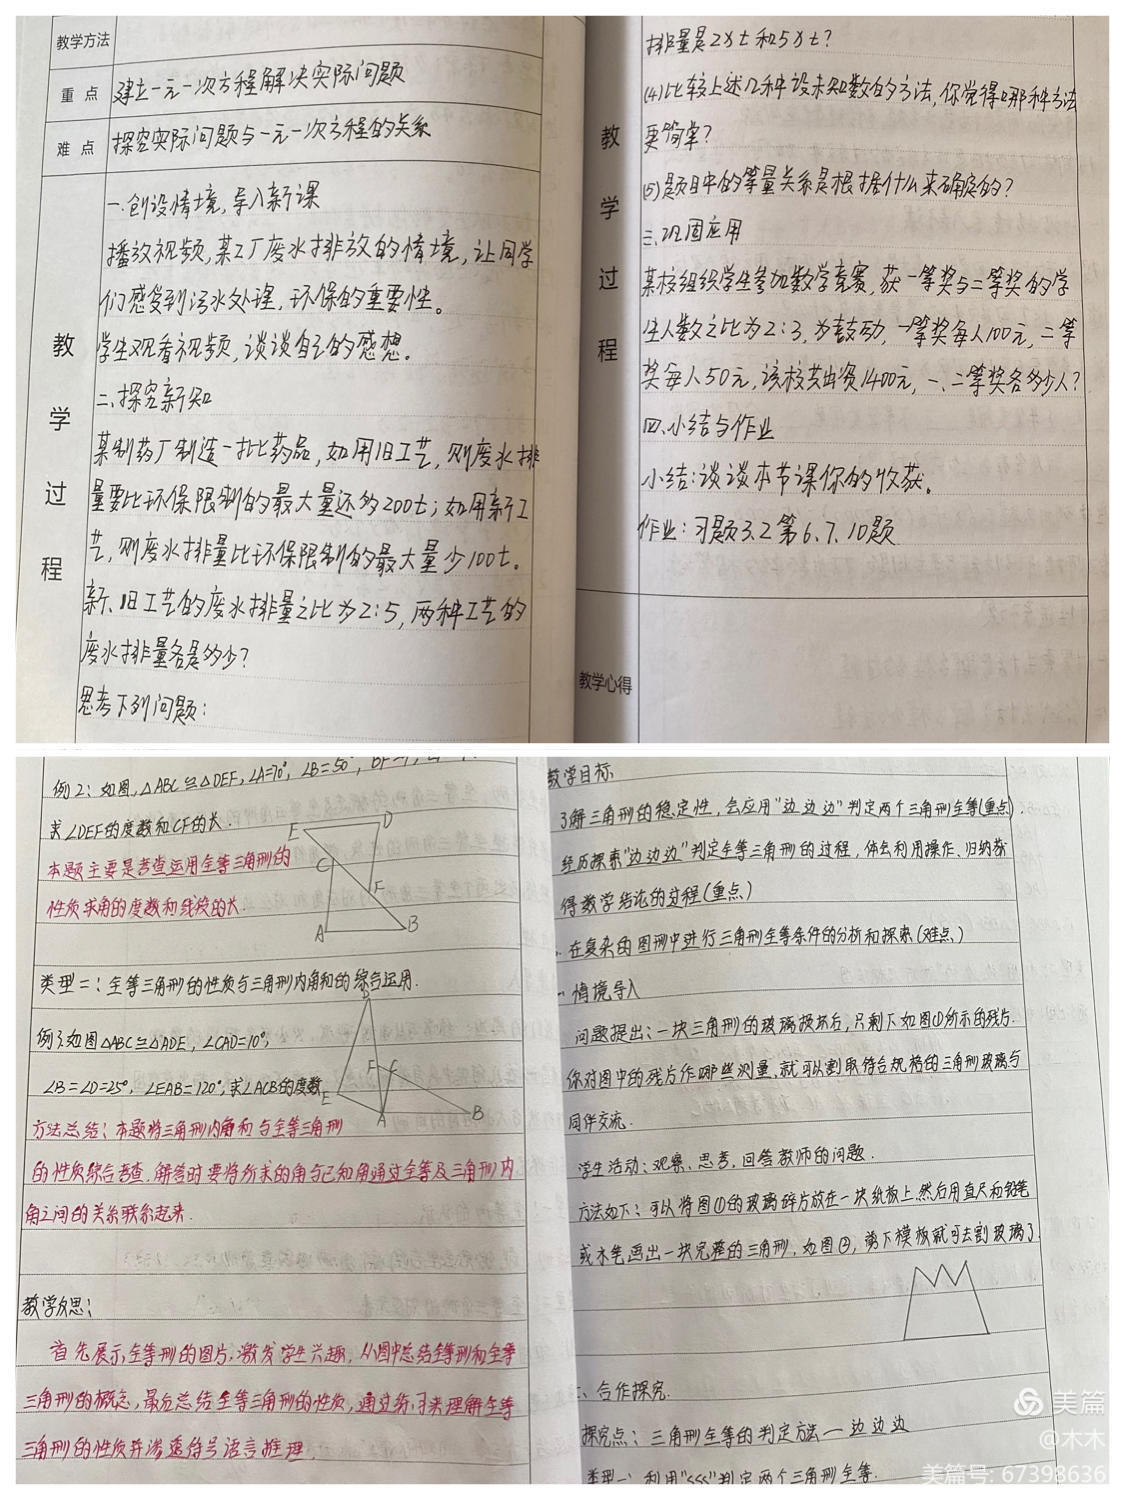 教学方法
重点
建立一元一次方程解决实际问题
难点
探究实际问题与一元一次方程的关系
教学过程
一.创设情境,导入新课
播放视频,某工厂废水排放的情境,让同学
们感受到污水处理,环保的重要性。
学生观看视频,谈谈自己的感想。
二、探究新知
某制药厂制造一批药品,如用旧工艺,则废水排
量要比环保限制的最大量还多200t;如用新工
艺,则废水排量比环保限制的最大量少100t。
新、旧工艺的废水排量之比为2:5,两种工艺的
废水排量各是多少?
思考下列问题:
排量是2xt和5xt?
(4)比较上述几种设未知数的方法,你觉得哪种方法
更简单?
(5)题目中的等量关系是根据什么来确定的?
教学过程
三、巩固应用
某校组织学生参加数学竞赛,获一等奖与二等奖的学
生人数之比为2:3,为鼓动,一等奖每人100元,二等
奖每人50元,该校共出资1400元,一、二等奖各多少人?
四.小结与作业
小结:谈谈本节课你的收获。
作业:习题3.2第6.7.10题
教学心得
例2:如图,△ABC≌△DEF,∠A=70°,∠B=50°,BF=
求∠DEF的度数和CF的长.
E D
C
F
A B
本题主要是考查运用全等三角形的
性质求角的度数和线段的长.
类型二:全等三角形的性质与三角形内角和的综合运用.
例3.如图△ABC≌△ADE,∠CAD=10°,
∠B=∠D=25°,∠EAB=120°,求∠ACB的度数
D
F C
E
A B
方法总结:本题将三角形内角和与全等三角形
的性质综合考查.解答时要将所求的角与已知角通过全等及三角形内
角之间的关系联系起来.
教学反思:
首先展示全等形的图片,激发学生兴趣,从图中总结全等形和全等
三角形的概念,最后总结全等三角形的性质,通过练习来理解全等
三角形的性质并渗透符号语言推理.
教学目标
了解三角形的稳定性,会应用"边边边"判定两个三角形全等(重点).
经历探索"边边边"判定全等三角形的过程,体会利用操作、归纳获
得数学结论的过程(重点)
在复杂的图形中进行三角形全等条件的分析和探索(难点)
一情境导入
问题提出:一块三角形的玻璃损坏后,只剩下如图①所示的残片.
你对图中的残片作哪些测量,就可以割取符合规格的三角形玻璃与
同伴交流.
学生活动:观察、思考,回答教师的问题.
方法如下:可以将图①的玻璃碎片放在一块纸板上,然后用直尺和铅笔
或水笔画出一块完整的三角形,如图②,剪下模板就可去割玻璃了.
二、合作探究.
探究点:三角形全等的判定方法一边边边
类型一:利用"SSS"判定两个三角形全等.
美篇
@木木
美篇号: 67393636